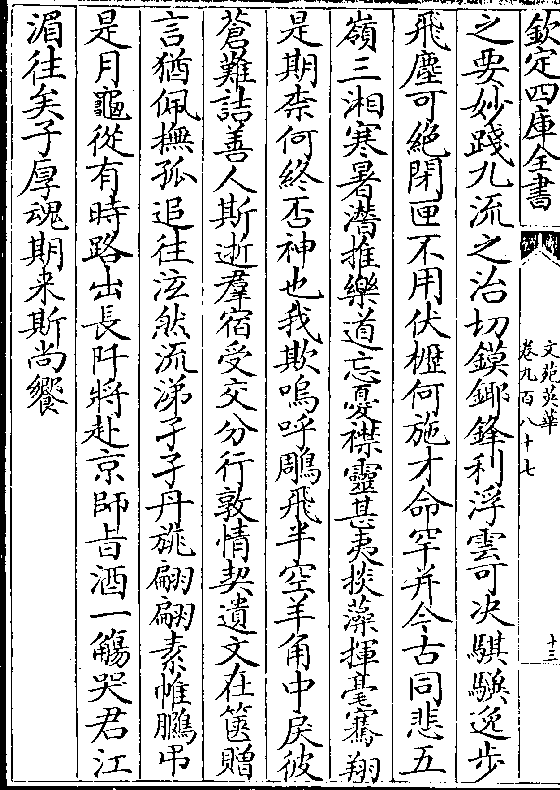 欽定四庫全書
文苑英華
卷九百八十七
十三
之要妙踐九流之治切鏌鎁鋒利浮雲可决騏驥逸步
飛塵可絶閉匣不用伏櫪何施才命罕并今古同悲五
嶺三湘寒暑潛推樂道忘憂襟靈甚夷掞藻揮毫騫翔
是期柰何終否神也我欺嗚呼鵰飛半空羊角中戾彼
蒼難詰善人斯逝羣宿受交分行敦情契遺文在篋贈
言猶佩撫孤追往泫然流涕孑孑丹旐翩翩素帷鵬弔
是月龜從有時路出長阡將赴京師旨酒一觴哭君江
湄往矣子厚魂期来斯尚饗